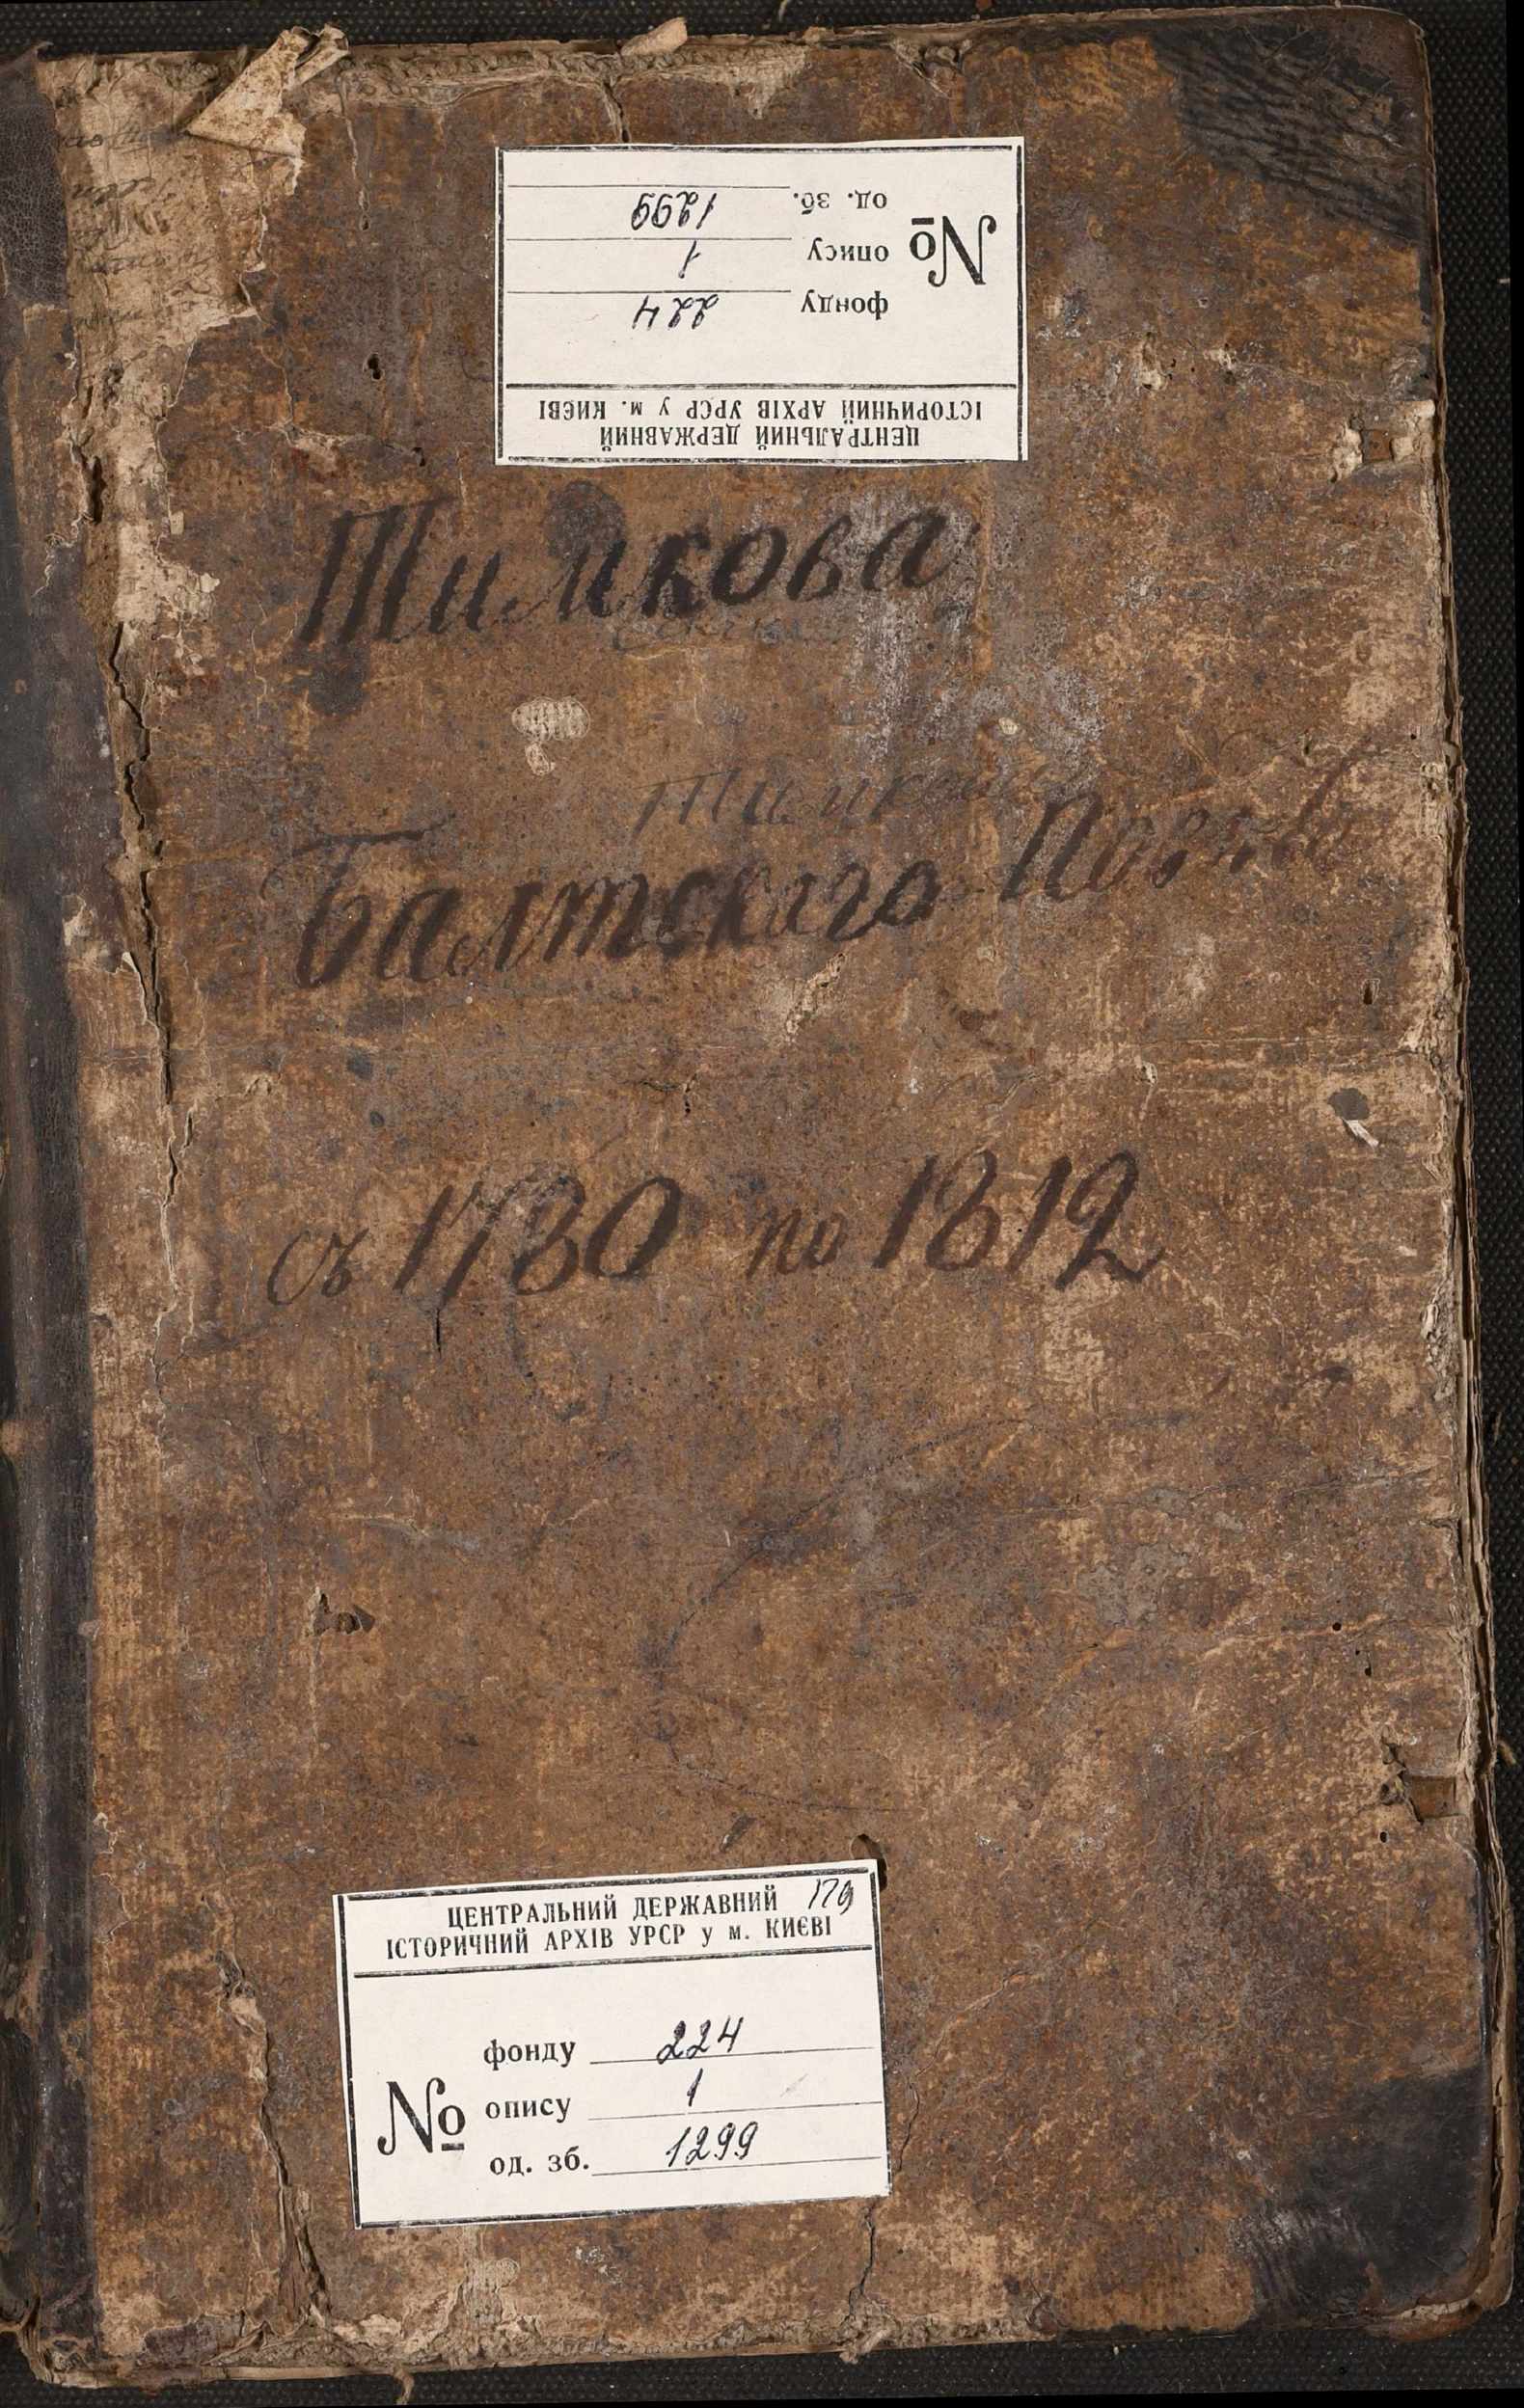 ЦЕНТРАЛЬНИЙ ДЕРЖАВНИЙ
ІСТОРИЧНИЙ АРХІВ УРСР у м. КИЄВІ
№
фонду 224
опису 1
од. зб. 1299
Тимкова
Балтскаго
съ 1780 по 1812
ЦЕНТРАЛЬНИЙ ДЕРЖАВНИЙ 179
ІСТОРИЧНИЙ АРХІВ УРСР у м. КИЄВІ
№
фонду 224
опису 1
од. зб. 1299